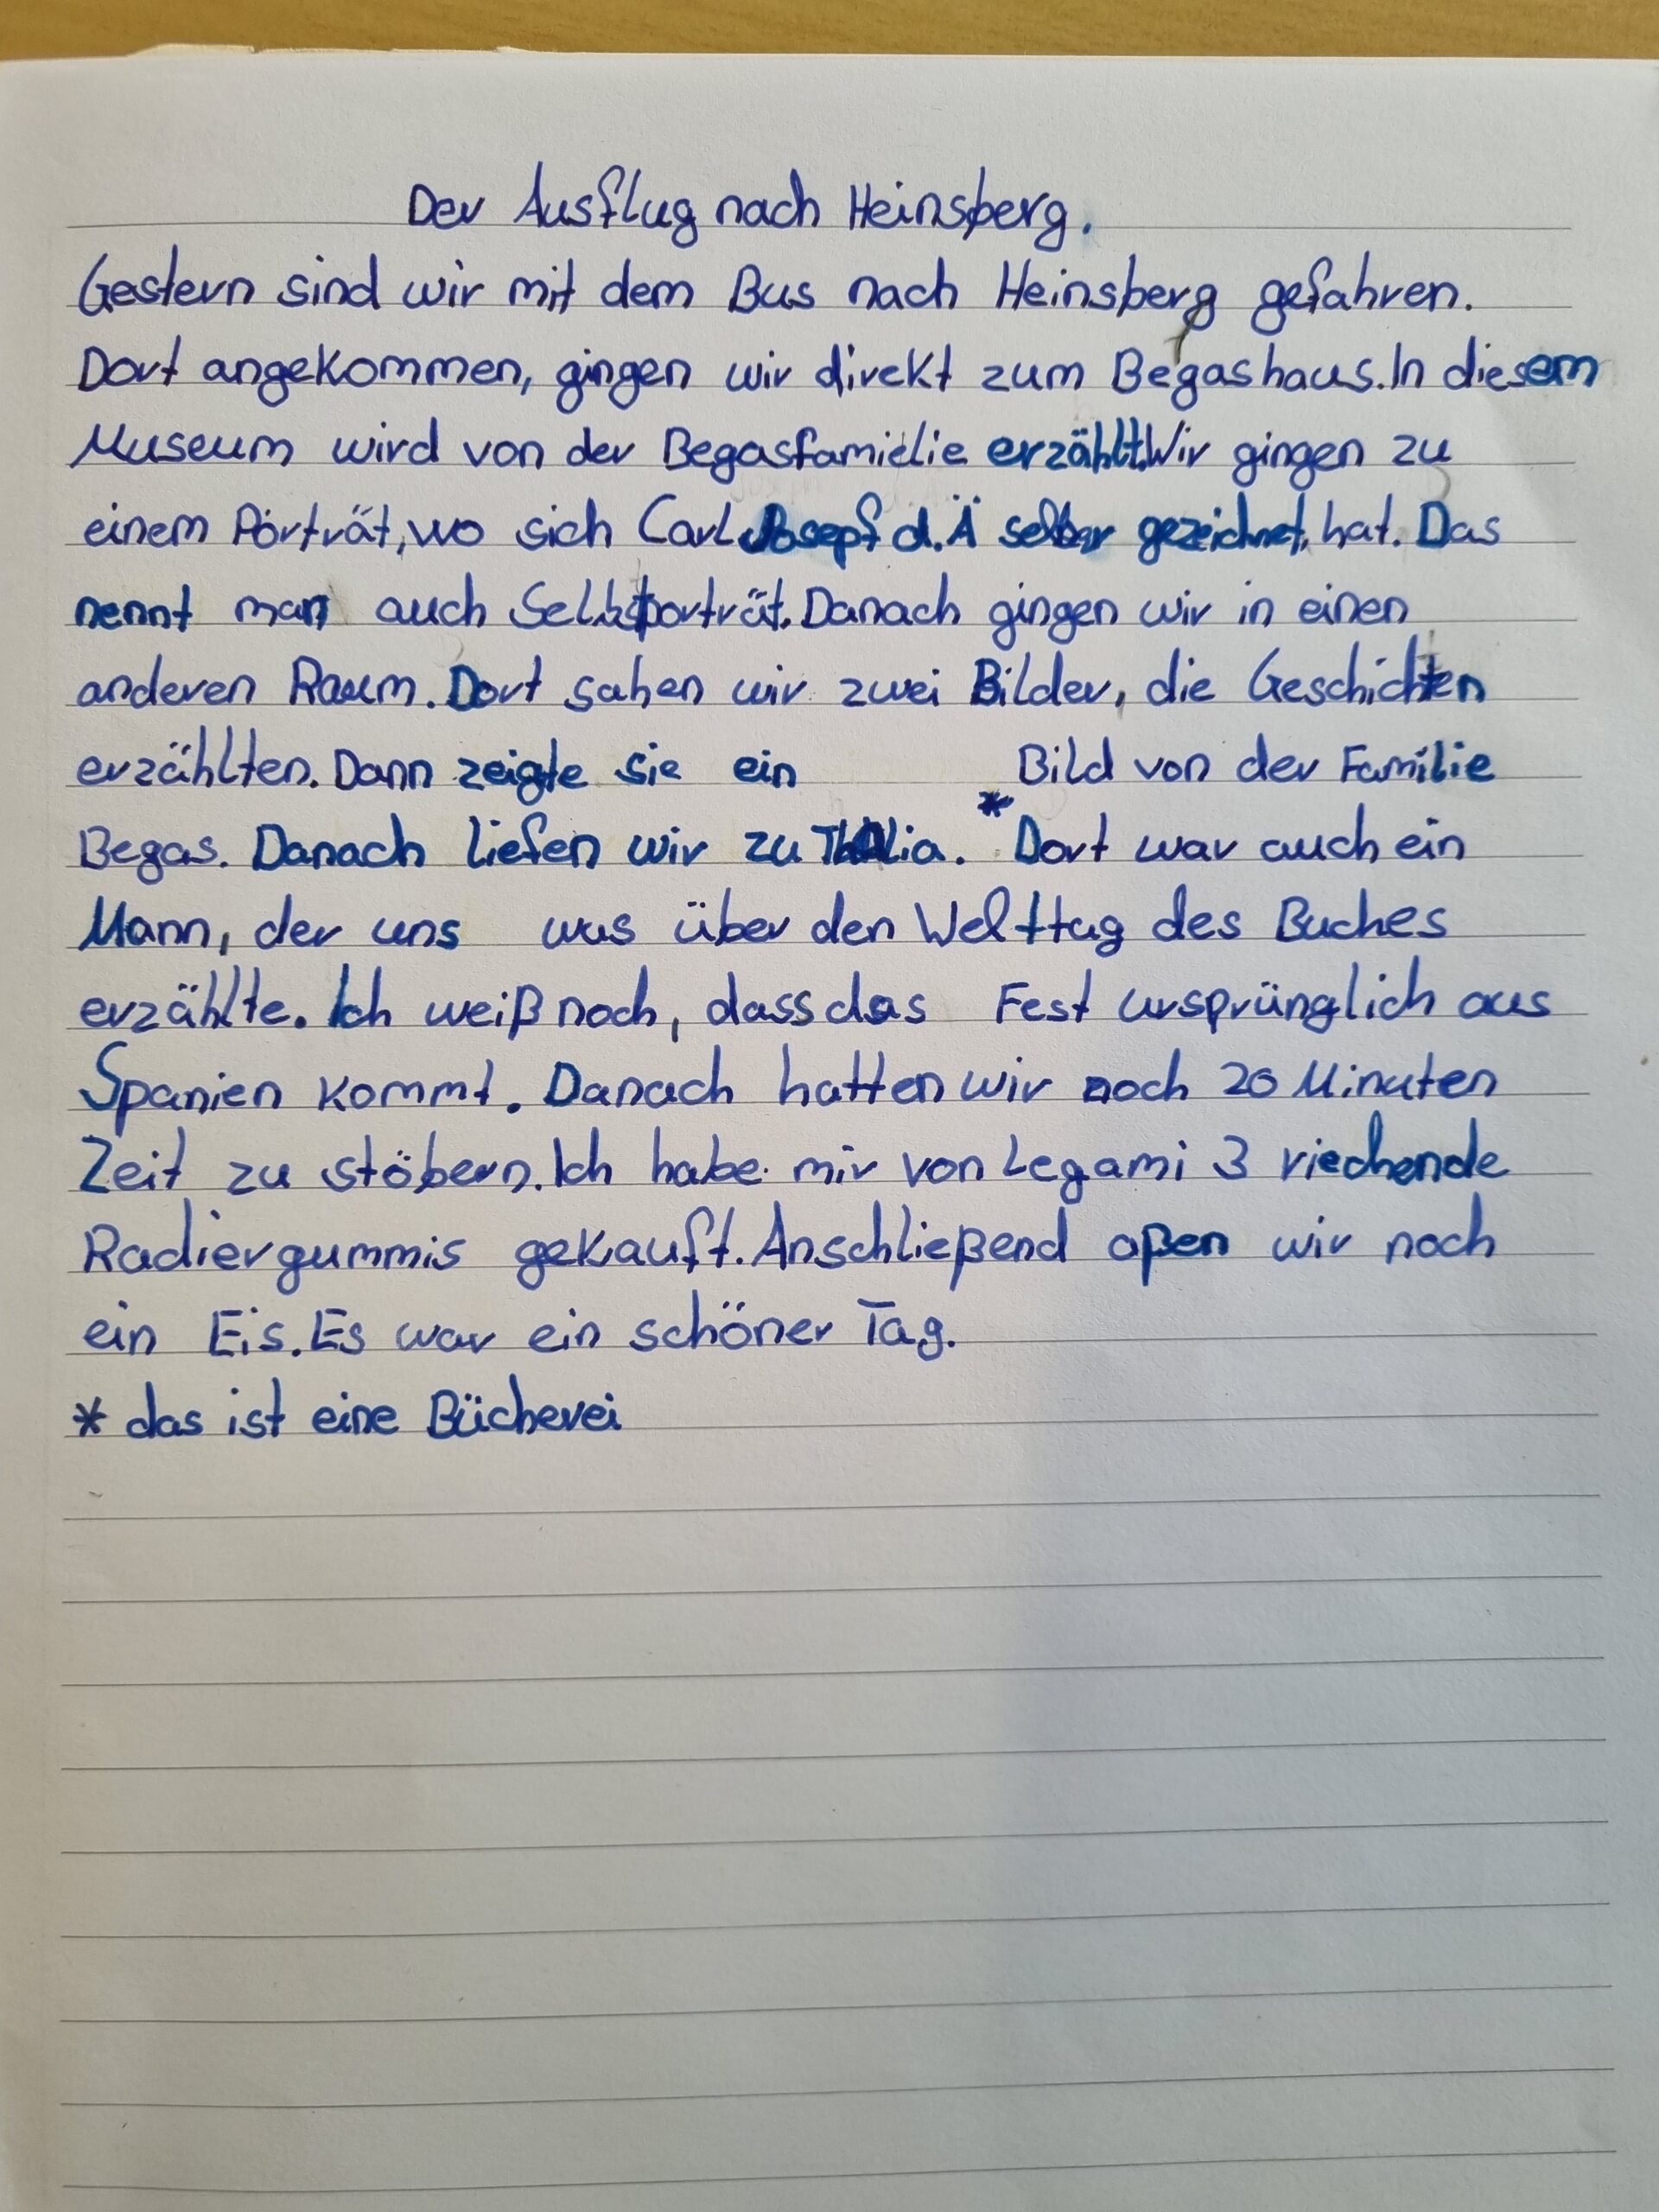 Der Ausflug nach Heinsberg.
Gestern sind wir mit dem Bus nach Heinsberg gefahren.
Dort angekommen, gingen wir direkt zum Begashaus. In diesem
Museum wird von der Begasfamielie erzählt. Wir gingen zu
einem Pörträt, wo sich Carl Josepf d. Ä selber gezeichnet, hat. Das
nennt man auch Selbstporträt. Danach gingen wir in einen
anderen Raum. Dort sahen wir zwei Bilder, die Geschichten
erzählten. Dann zeigte sie ein Bild von der Familie
Begas. Danach liefen wir zu Thalia. * Dort war auch ein
Mann, der uns was über den Welttag des Buches
erzählte. Ich weiß noch, dass das Fest ursprünglich aus
Spanien kommt. Danach hatten wir noch 20 Minuten
Zeit zu stöbern. Ich habe mir von Legami 3 riechende
Radiergummis gekauft. Anschließend aßen wir noch
ein Eis. Es war ein schöner Tag.
* das ist eine Bücherei